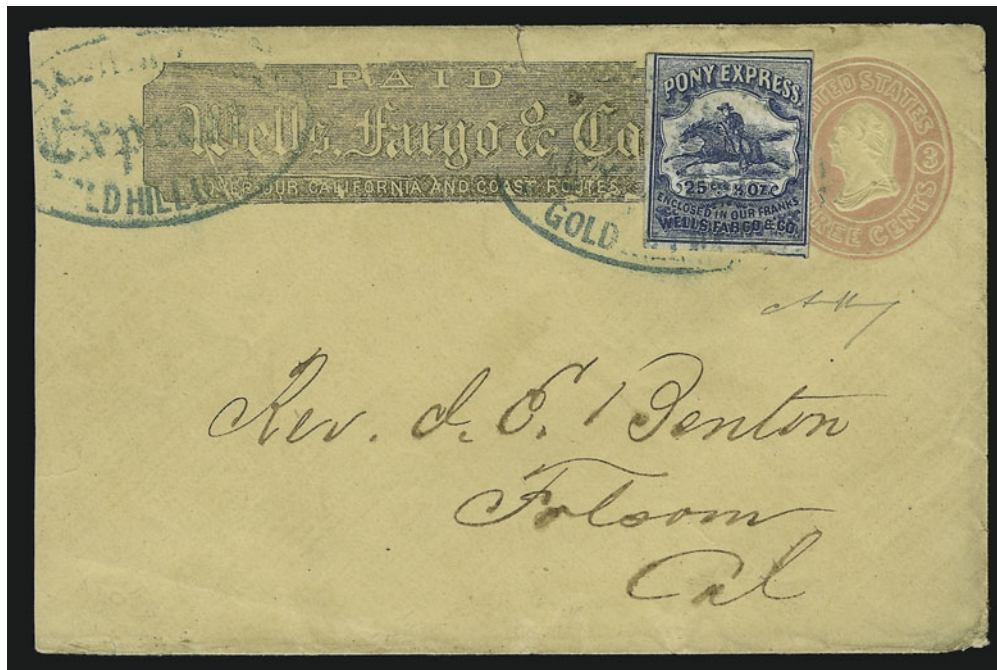 PAID
Wells, Fargo & Co
OVER OUR CALIFORNIA AND COAST ROUTES.
Express
GOLD HILL
GOLD
PONY EXPRESS
25 Cts ½ OZ
ENCLOSED IN OUR FRANKS
WELLS, FARGO & CO.
UNITED STATES
3
THREE CENTS
Rev. J. E. Benton
Folsom
Cal